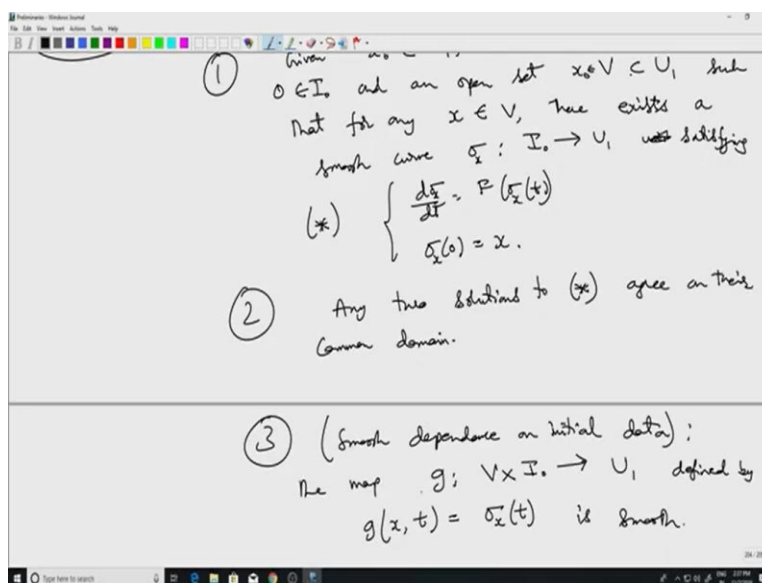 Preliminaries - Windows Journal
File Edit View Insert Actions Tools Help
B I
① Given
0 ∈ I₀ and an open set x₀ ∈ V ⊂ U₁ such
that for any x ∈ V, there exists a
smooth curve σₓ : I₀ → U₁ satisfying
(*) { dσₓ/dt = F(σₓ(t))
σₓ(0) = x.
② Any two solutions to (*) agree on their
Common domain.
③ (Smooth dependence on initial data) :
The map g : V × I₀ → U₁ defined by
g(x, t) = σₓ(t) is smooth.
Type here to search
ENG 2:37 PM